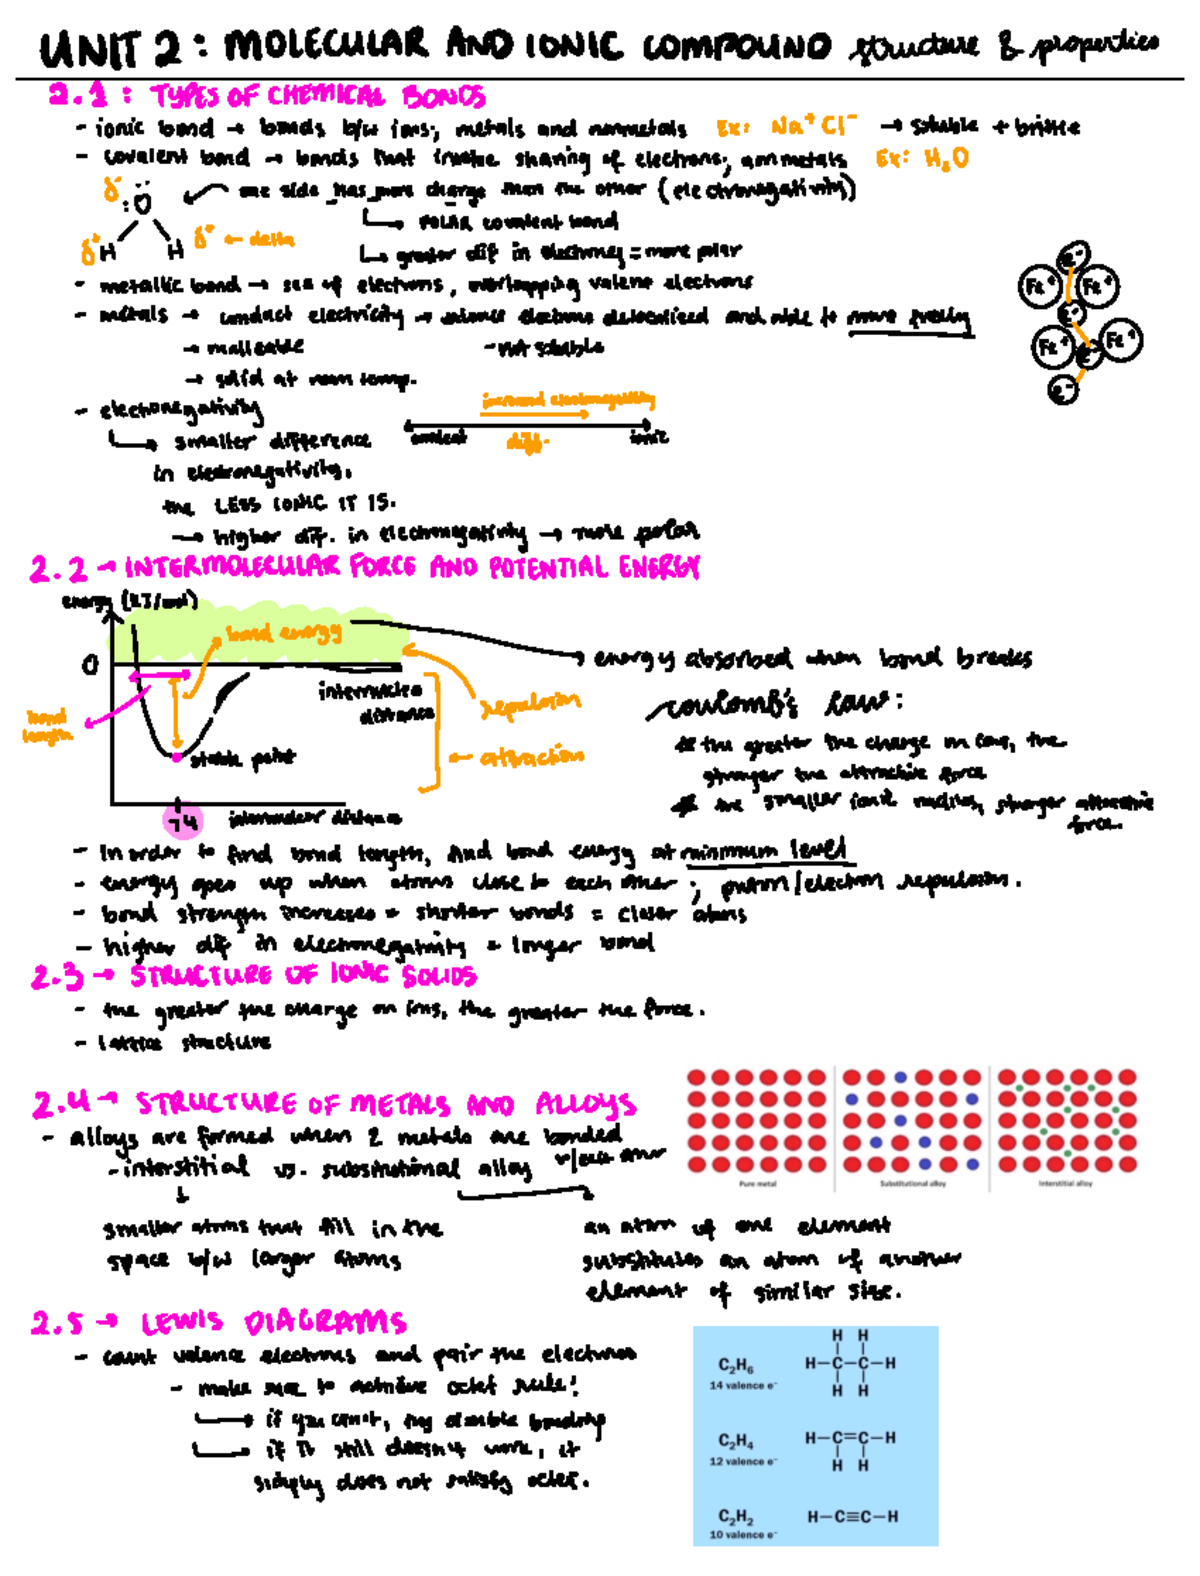 UNIT 2: MOLECULAR AND IONIC COMPOUND structure & properties
2.1: TYPES OF CHEMICAL BONDS
- ionic bond → bonds b/w ions; metals and nonmetals Ex: Na⁺Cl⁻ → soluble + brittle
- covalent bond → bonds that involve sharing of electrons; nonmetals Ex: H₂O
δ⁻ :Ö
one side has more charge than the other (electronegativity)
POLAR covalent bond
δ⁺ H H δ⁺ ← delta
greater dif in electroneg = more polar
- metallic bond → sea of electrons, overlapping valence electrons
- metals → conduct electricity → valence electrons delocalized and able to move freely
→ malleable - not soluble
→ solid at room temp.
e⁻
Fe⁺ Fe⁺
e⁻
Fe⁺ e⁻ Fe⁺
e⁻
- electronegativity
increased electronegativity
covalent diff. ionic
smaller difference
in electronegativity,
the LESS IONIC IT IS.
→ higher dif. in electronegativity → more polar
2.2 → INTERMOLECULAR FORCE AND POTENTIAL ENERGY
energy (kJ/mol)
bond energy
0
energy absorbed when bond breaks
internuclea
distance
repulsion
bond
length
stable point
attraction
74 internuclear distance
coulomb's law:
* the greater the charge on ions, the
stronger the attractive force
* the smaller ionic radius, stronger attractive
force.
- In order to find bond length, find bond energy at minimum level
- energy goes up when atoms close to each other; proton/electron repulsion.
- bond strength increases = shorter bonds = closer atoms
- higher dif in electronegativity = longer bond
2.3 → STRUCTURE OF IONIC SOLIDS
- the greater the charge on ions, the greater the force.
- lattice structure
2.4 → STRUCTURE OF METALS AND ALLOYS
- alloys are formed when 2 metals are bonded
w/each other
- interstitial vs. substitutional alloy
smaller atoms that fill in the
space b/w larger atoms
an atom of one element
substitutes an atom of another
element of similar size.
Pure metal Substitutional alloy Interstitial alloy
2.5 → LEWIS DIAGRAMS
- count valence electrons and pair the electrons
- make sure to achieve octet rule!
if you can't, try double bonding
if it still doesn't work, it
simply does not satisfy octet.
H H
C₂H₆ H-C-C-H
14 valence e⁻
H H
C₂H₄ H-C=C-H
12 valence e⁻
H H
C₂H₂ H-C≡C-H
10 valence e⁻